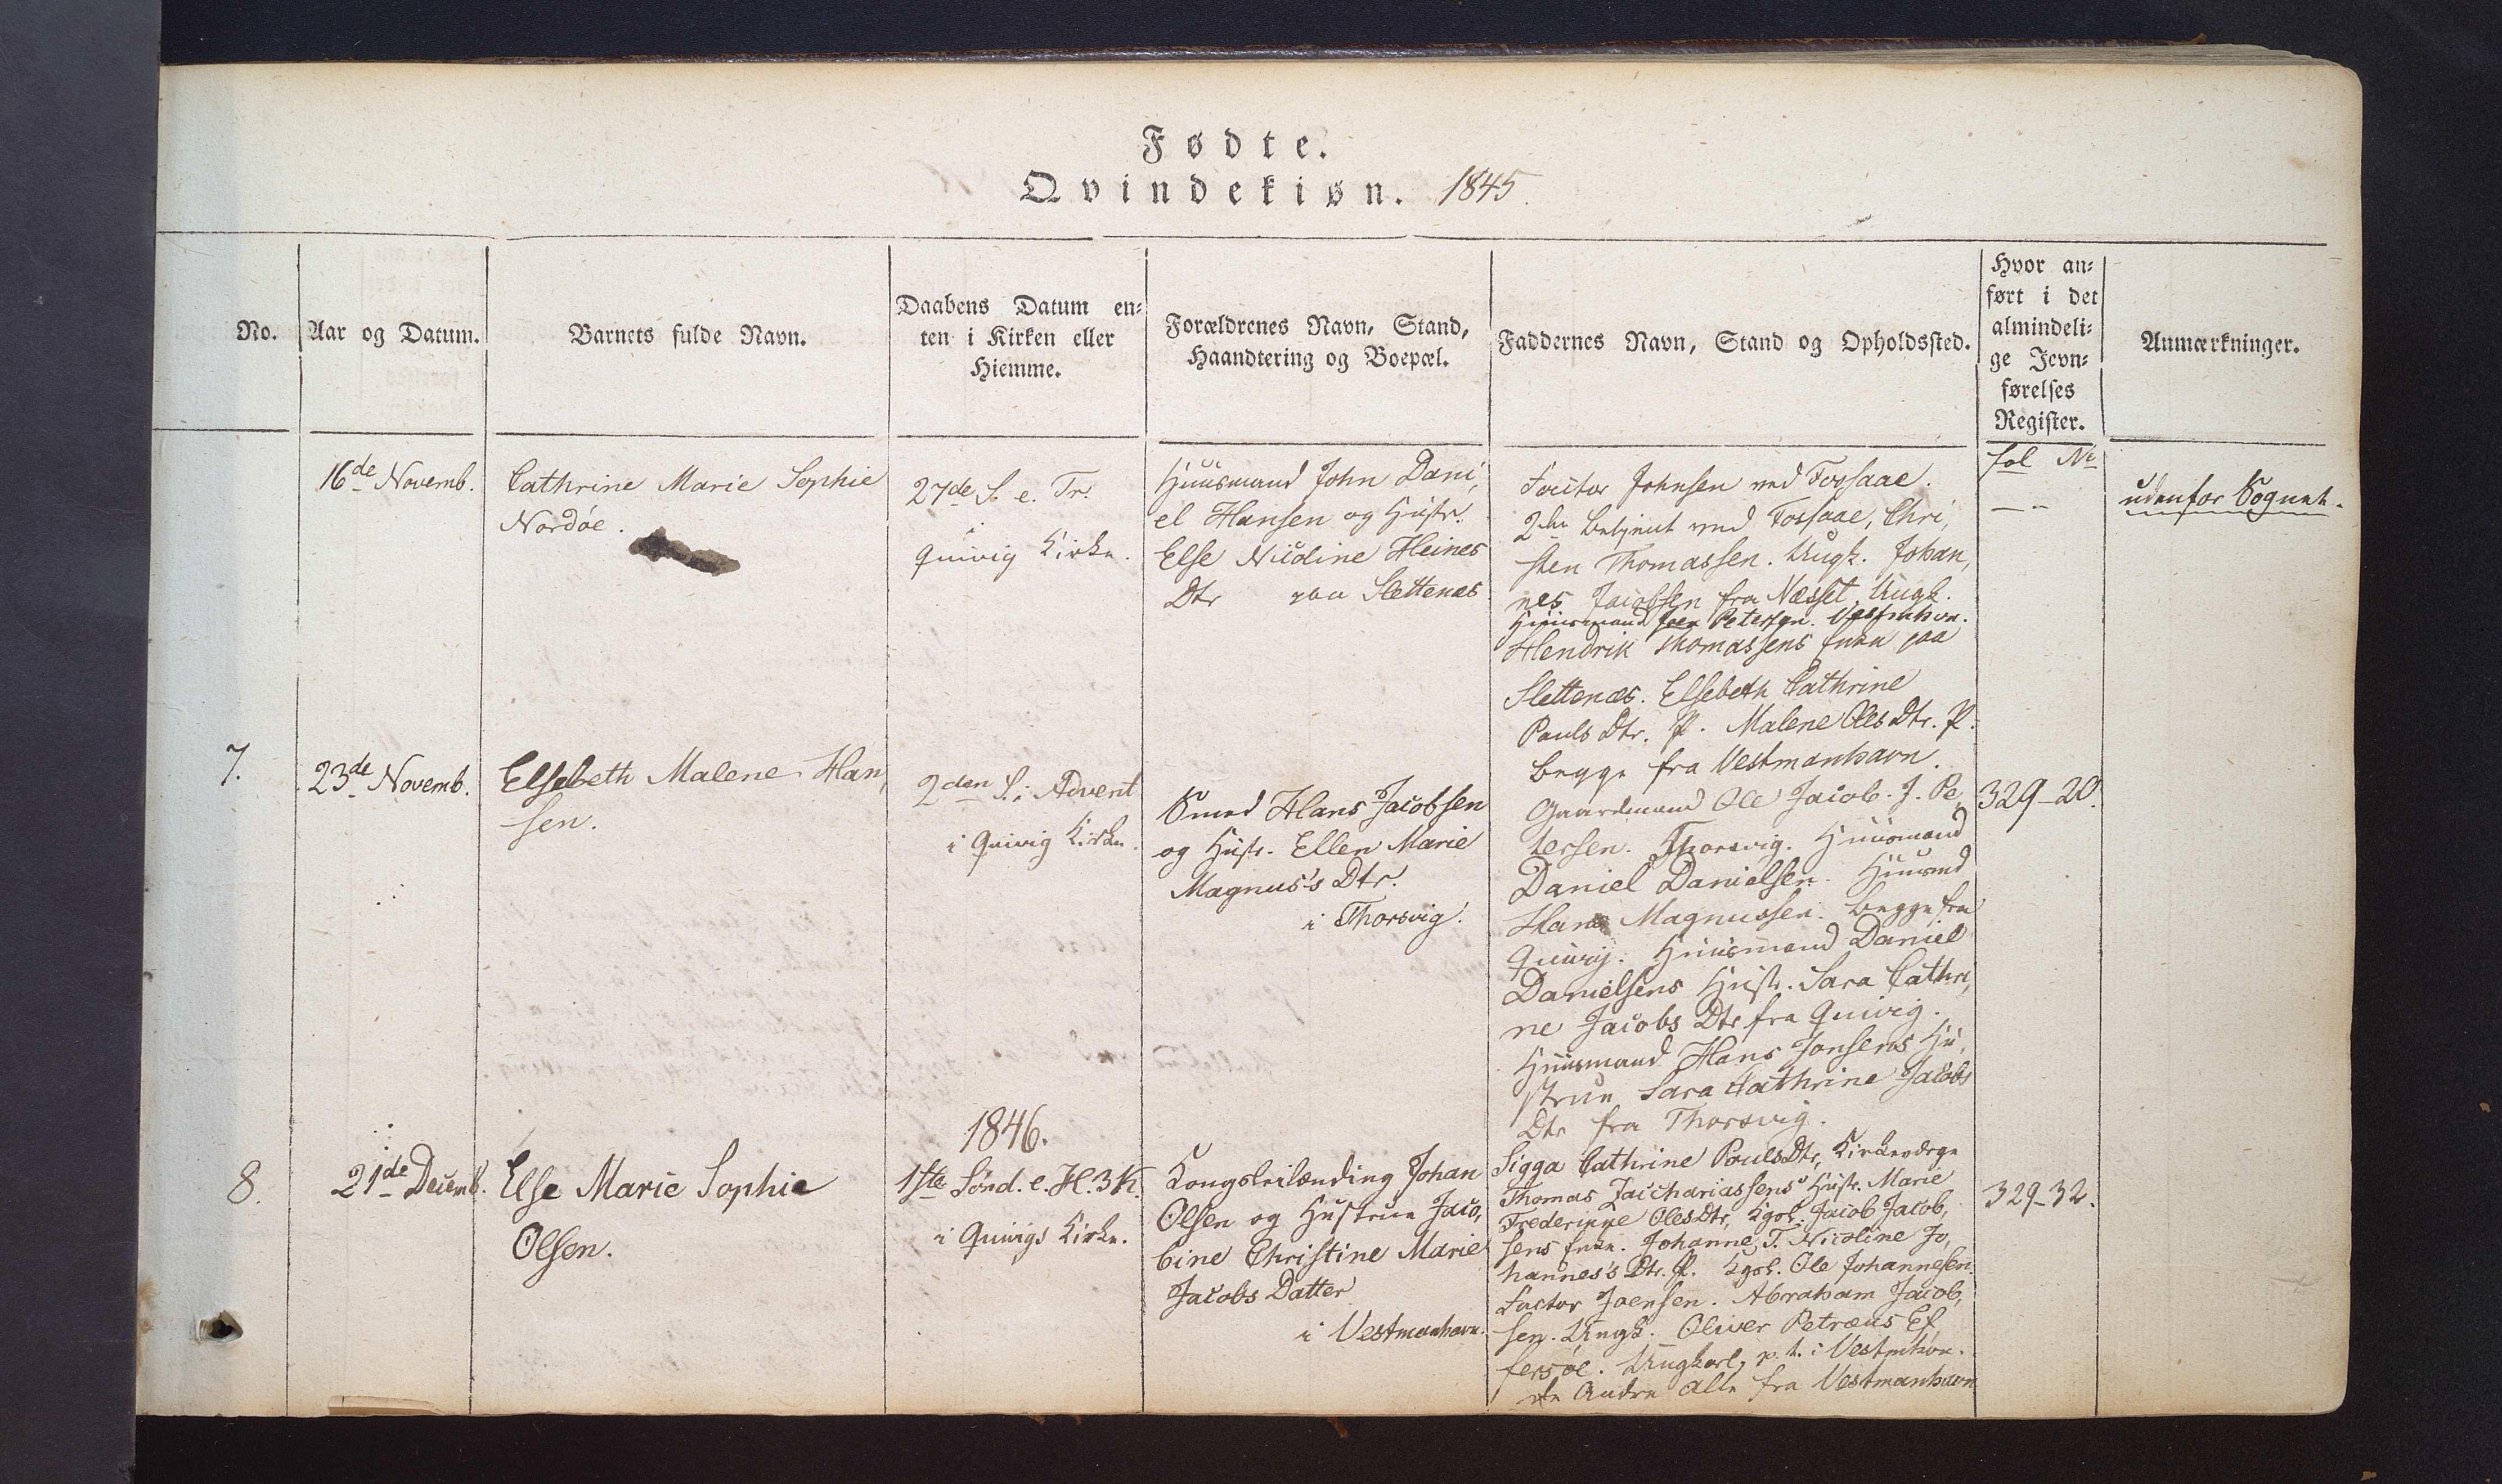 Fødte.
Qvindekiøn. 1845.
No.
Aar og Datum.
Barnets fulde Navn.
Daabens Datum en=
ten i Kirken eller
Hiemme.
Forældrenes Navn, Stand,
Haandtering og Boepæl.
Faddernes Navn, Stand og Opholdssted.
Hvor an=
ført i det
almindeli=
ge Jevn=
førelses
Register.
Anmærkninger.
16de Novemb.
Cathrine Marie Sophie
Nordöe.
27de S. e. Tr.
Quivig Kirke.
Huusmand John Dani,
el Hansen og Hustr.
Else Nicdine Heines
Dtr paa Slettenæs
Factor Johnsen ved Fossaae.
2den Betjent ved Fossaae, Chri,
sten Thomassen. Ungk. Johan,
nes Jacobsen fra Næsset. Ungk.
Huusmand Joen Petersen. Vestmhvn.
Hendrik Thomassens Enke paa
Slettenæs. Elsebeth Cathrine
Pauls Dtr. P. Malene Oles Dtr. P.
begge fra Vestmanhavn.
fol No
— „
udenfor Sognet.
7.
23de Novemb.
Elsebeth Malene Han,
sen.
2den S. i Advent
i Quivig Kirke.
Smed Hans Jacobsen
og Hustr. Ellen Marie
Magnus's Dtr.
i Thorsvig.
Gaardmand Ole Jacob J. Pe,
tersen. Thorsvig. Huusmand
Daniel Danielsen. Huusmd
Hans Magnussen. begge fra
Quivig. Huusmand Daniel
Danielsens Hustr. Sara Cathri,
ne Jacobs Dtr fra Quivig.
Huusmand Hans Jonsens Hu,
strue Sara Cathrine Jacobs
Dtr fra Thorsvig.
329-20.
8.
21de Decemb.
Else Marie Sophie
Olsen.
1846.
1ste Sönd. e. H. 3 K.
i Quivigs Kirke.
Kongsleilænding Johan
Olsen og Hustrue Jaco,
bine Christine Marie
Jacobs Datter
i Vestmanhavn.
Sigga Cathrine Pouls Dtr, Kirkeværge
Thomas Zacchariassens Hustr. Marie
Frederikke Oles Dtr, Kgsl. Jacob Jacob,
sens Enke. Johanne T. Nicoline Jo,
hannes's Dtr. P. Kgsl. Ole Johannesen.
Factor Joensen. Abraham Jacob,
sen. Ungk. Oliver Petræus Ef,
fersöe. Ungkarl, p. t. i Vestmhvn.
de Andre alle fra Vestmanhavn
329-32.